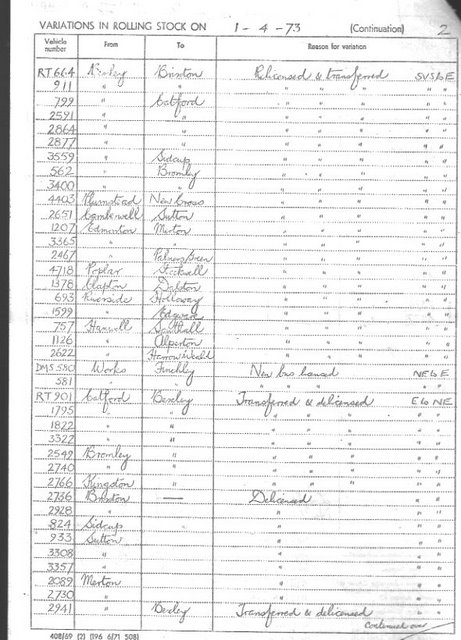 VARIATIONS IN ROLLING STOCK ON 1-4-73 (Continuation) 2
Vehicle number From To Reason for variation
RT 664 Bexley Brixton Relicensed & transferred SVS to E
911 " " " " " " "
799 " Catford " " " " "
2591 " " " " " " "
2864 " " " " " " "
2877 " " " " " " "
3559 " Sidcup " " " " "
562 " Bromley " " " " "
3400 " " " " " " "
4403 Plumstead New Cross " " " " "
2651 Camberwell Sutton " " " " "
1207 Edmonton Merton " " " " "
3365 " " " " " " "
2467 " Palmers Green " " " " "
4718 Poplar Stockwell " " " " "
1378 Clapton Dalston " " " " "
693 Riverside Holloway " " " " "
1599 " Edgware " " " " "
757 Hanwell Southall " " " " "
1126 " Alperton " " " " "
2622 " Harrow Weald " " " " "
DMS 580 Works Finchley New bus licensed NE to E
581 " " " " " " "
RT 901 Catford Bexley Transferred & delicensed E to NE
1795 " " " " " " "
1822 " " " " " " "
3322 " " " " " " "
2549 Bromley " " " " " "
2740 " " " " " " "
2766 Kingston " " " " " "
2736 Brixton — Delicensed " "
2928 " " " "
824 Sidcup " " "
933 Sutton " " "
3308 " " " "
3357 " " " "
2089 Merton " " "
2730 " " " "
2941 " Bexley Transferred & delicensed " "
Continued over
408/69 (2) (196 6/71 508)